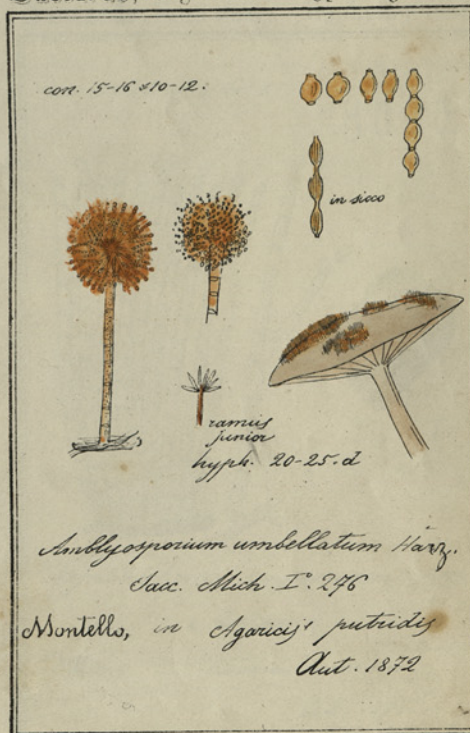 con. 15-16 ∗ 10-12.
in sicco
ramus
junior
hyph. 20-25. d
Amblyosporium umbellatum Harz.
Sacc. Mich. I.° 276
Montello, in Agaricis putridis
Aut. 1872